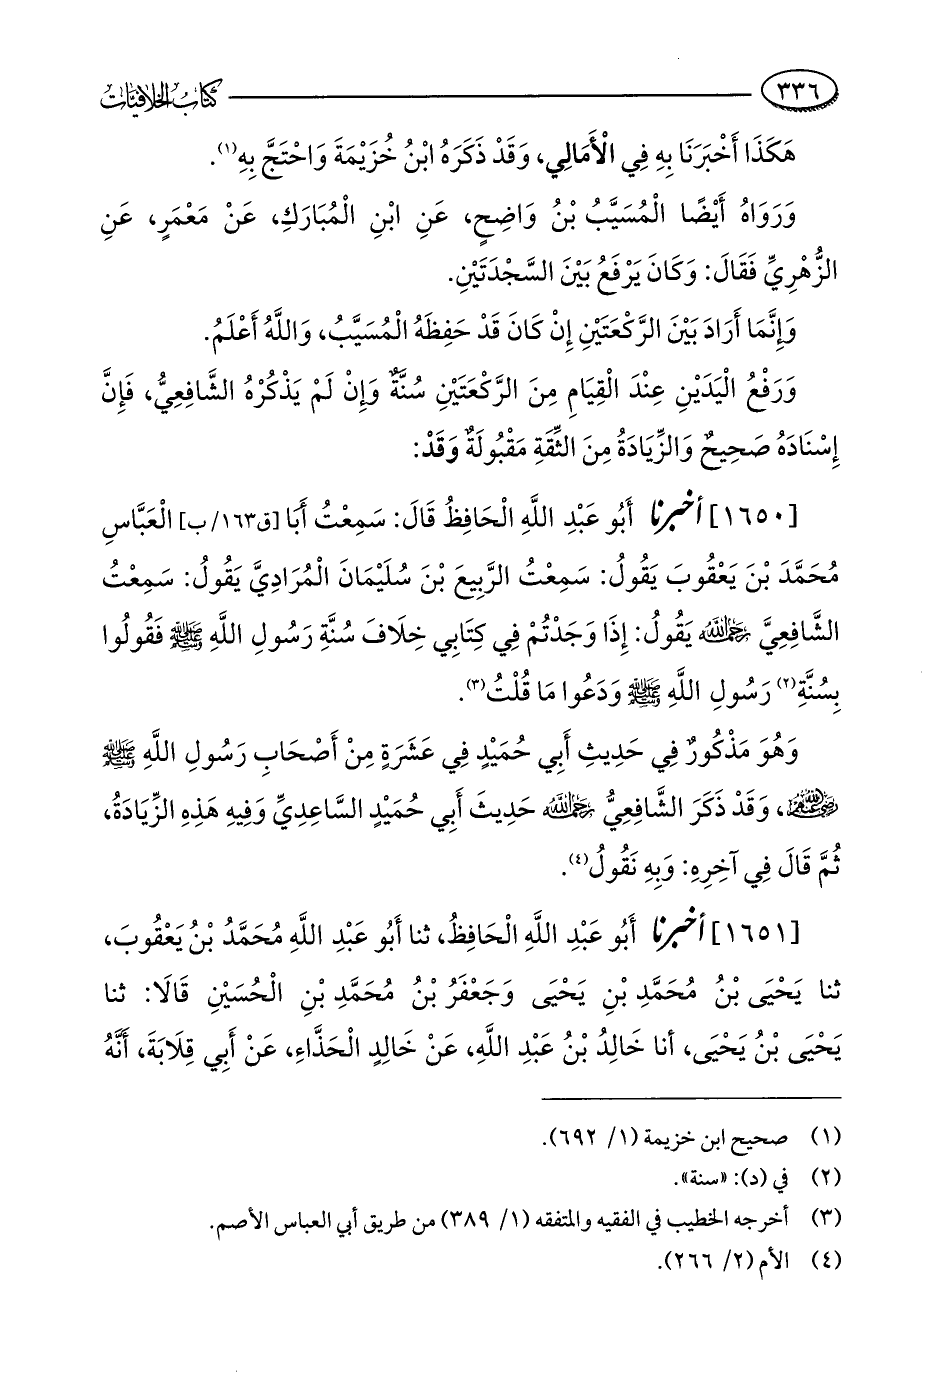 ٣٣٦ كتاب الخلافيات
هَكَذَا أَخْبَرَنَا بِهِ فِي الْأَمَالِي، وَقَدْ ذَكَرَهُ ابْنُ خُزَيْمَةَ وَاحْتَجَّ بِهِ(١).
وَرَوَاهُ أَيْضًا الْمُسَيَّبُ بْنُ وَاضِحٍ، عَنِ ابْنِ الْمُبَارَكِ، عَنْ مَعْمَرٍ، عَنِ
الزُّهْرِيِّ فَقَالَ: وَكَانَ يَرْفَعُ بَيْنَ السَّجْدَتَيْنِ.
وَإِنَّمَا أَرَادَ بَيْنَ الرَّكْعَتَيْنِ إِنْ كَانَ قَدْ حَفِظَهُ الْمُسَيَّبُ، وَاللَّهُ أَعْلَمُ.
وَرَفْعُ الْيَدَيْنِ عِنْدَ الْقِيَامِ مِنَ الرَّكْعَتَيْنِ سُنَّةٌ وَإِنْ لَمْ يَذْكُرْهُ الشَّافِعِيُّ، فَإِنَّ
إِسْنَادَهُ صَحِيحٌ وَالزِّيَادَةُ مِنَ الثِّقَةِ مَقْبُولَةٌ وَقَدْ:
[١٦٥٠] أخبرنا أَبُو عَبْدِ اللَّهِ الْحَافِظُ قَالَ: سَمِعْتُ أَبَا [ق١٦٣/ب] الْعَبَّاسِ
مُحَمَّدَ بْنَ يَعْقُوبَ يَقُولُ: سَمِعْتُ الرَّبِيعَ بْنَ سُلَيْمَانَ الْمُرَادِيَّ يَقُولُ: سَمِعْتُ
الشَّافِعِيَّ رحمه الله يَقُولُ: إِذَا وَجَدْتُمْ فِي كِتَابِي خِلَافَ سُنَّةِ رَسُولِ اللَّهِ ﷺ فَقُولُوا
بِسُنَّةِ(٢) رَسُولِ اللَّهِ ﷺ وَدَعُوا مَا قُلْتُ(٣).
وَهُوَ مَذْكُورٌ فِي حَدِيثِ أَبِي حُمَيْدٍ فِي عَشَرَةٍ مِنْ أَصْحَابِ رَسُولِ اللَّهِ ﷺ
رضي الله عنهم، وَقَدْ ذَكَرَ الشَّافِعِيُّ رحمه الله حَدِيثَ أَبِي حُمَيْدٍ السَّاعِدِيِّ وَفِيهِ هَذِهِ الزِّيَادَةُ،
ثُمَّ قَالَ فِي آخِرِهِ: وَبِهِ نَقُولُ(٤).
[١٦٥١] أخبرنا أَبُو عَبْدِ اللَّهِ الْحَافِظُ، ثنا أَبُو عَبْدِ اللَّهِ مُحَمَّدُ بْنُ يَعْقُوبَ،
ثنا يَحْيَى بْنُ مُحَمَّدِ بْنِ يَحْيَى وَجَعْفَرُ بْنُ مُحَمَّدِ بْنِ الْحُسَيْنِ قَالَا: ثنا
يَحْيَى بْنُ يَحْيَى، أنا خَالِدُ بْنُ عَبْدِ اللَّهِ، عَنْ خَالِدٍ الْحَذَّاءِ، عَنْ أَبِي قِلَابَةَ، أَنَّهُ
(١) صحيح ابن خزيمة (١/ ٦٩٢).
(٢) في (د): «سنة».
(٣) أخرجه الخطيب في الفقيه والمتفقه (١/ ٣٨٩) من طريق أبي العباس الأصم.
(٤) الأم (٢/ ٢٦٦).